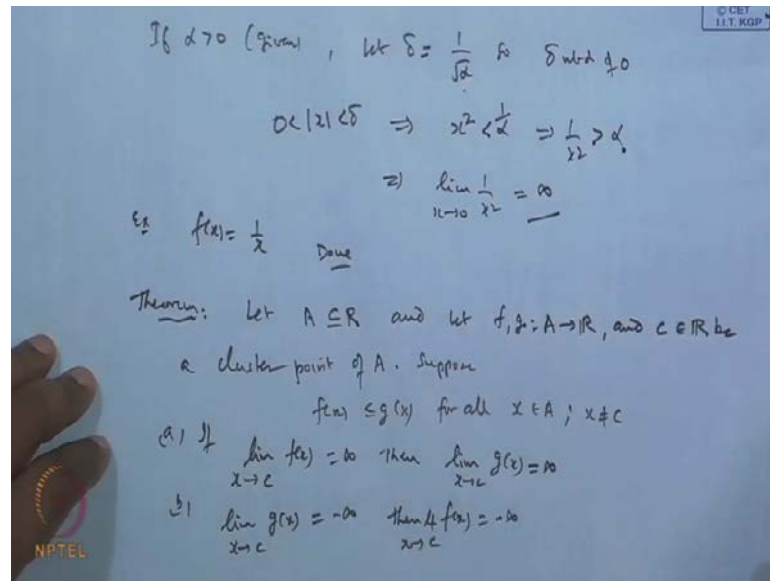 © CET
I.I.T. KGP
If α>0 (given) , let δ = 1/√α so δ nbd of 0
0<|x|<δ ⇒ x² < 1/α ⇒ 1/x² > α.
⇒ lim x→0 1/x² = ∞
Ex f(x) = 1/x Done
Theorem: Let A ⊆ R and let f, g : A → R, and c ∈ R be
a cluster point of A. Suppose
f(x) ≤ g(x) for all x ∈ A ; x ≠ c
(a) If lim x→c f(x) = ∞ then lim x→c g(x) = ∞
(b) lim x→c g(x) = -∞ then lt x→c f(x) = -∞
NPTEL